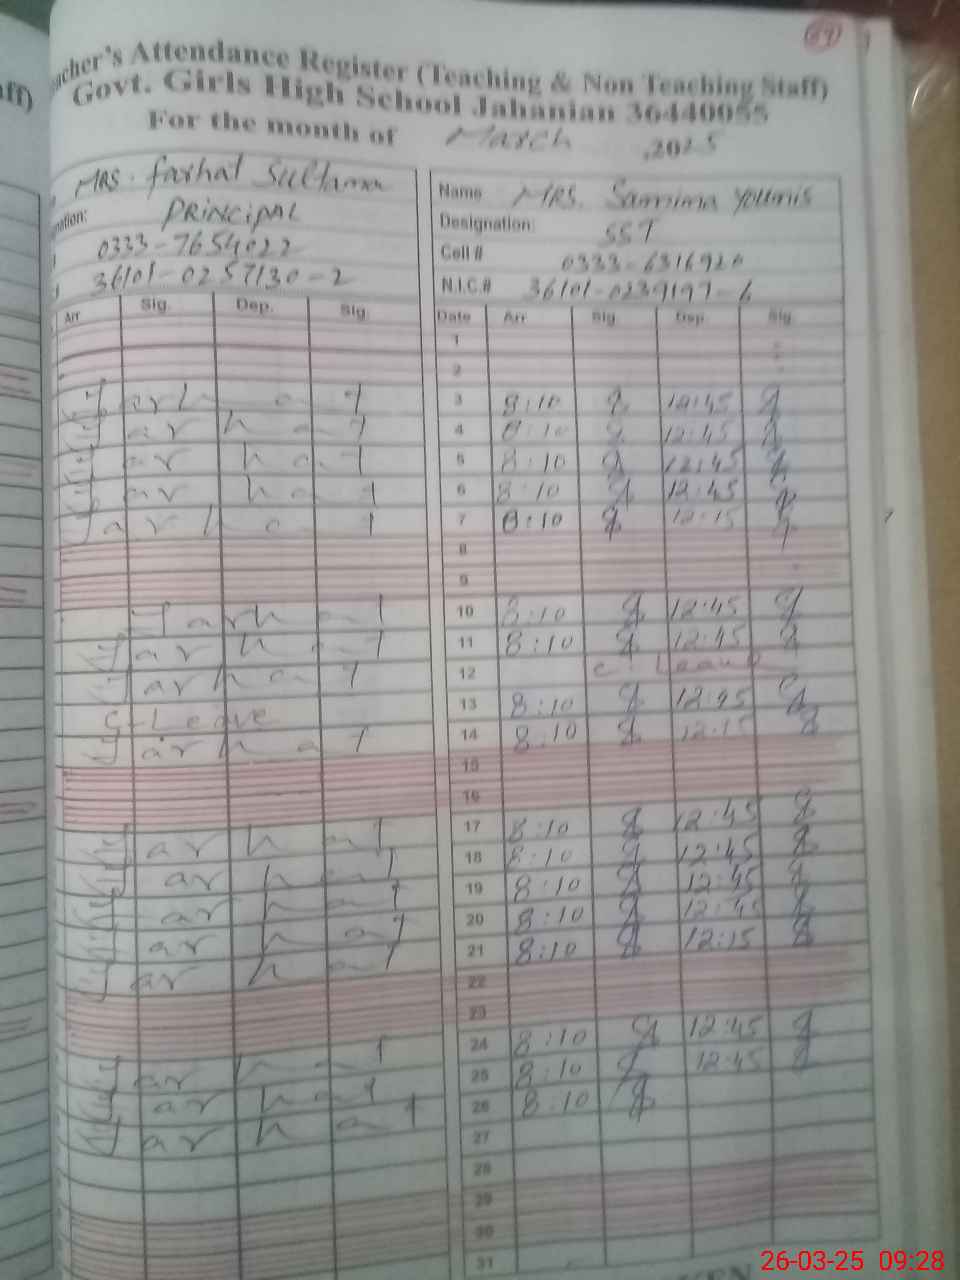 (Teaching & Non Teaching Staff)
acher's Attendance Register
Govt. Girls High School Jahanian 36440055
For the month of March ,2025
MRS. Farhat Sultana
nation: PRINCIPAL
0333-7654022
36101-0257130-2
Arr Sig. Dep. Sig
Farhat
Farhat
Farhat
Farhat
Farhat
Farhat
Farhat
Farhat
C-Leave
Farhat
Farhat
Farhat
Farhat
Farhat
Farhat
Farhat
Farhat
Farhat
Name MRS. Samina Younis
Designation: SST
Cell # 0333-6316920
N.I.C.# 36101-0239197-6
Date Arr Sig. Dep. Sig.
1
2
3 8:10 12:45
4 8:10 12:45
5 8:10 12:45
6 8:10 12:45
7 8:10 12:15
8
9
10 8:10 12:45
11 8:10 12:45
12 C. Leave
13 8:10 12:45
14 8:10 12:15
15
16
17 8:10 12:45
18 8:10 12:45
19 8:10 12:45
20 8:10 12:45
21 8:10 12:15
22
23
24 8:10 12:45
25 8:10 12:45
26 8:10
27
28
29
30
31
26-03-25 09:28